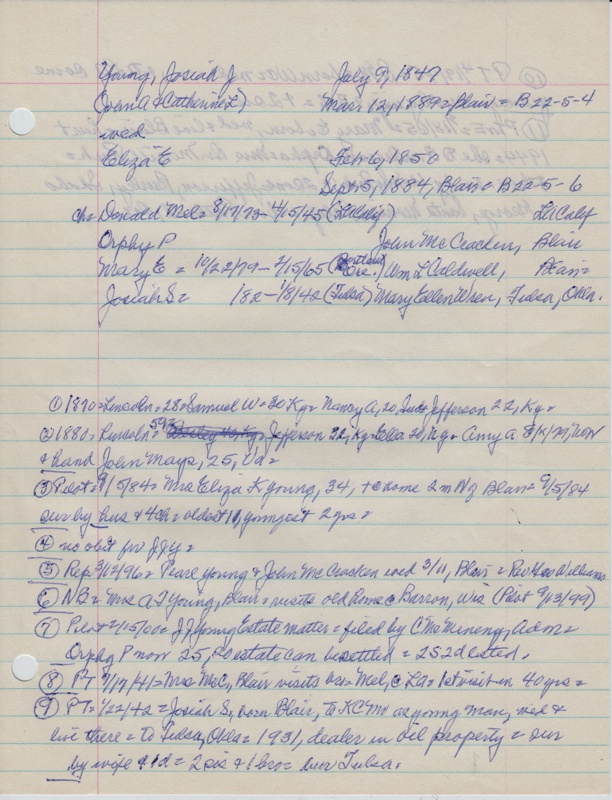 Young, Josiah J July 9, 1847
(John A & Catherine L) Mar. 12, 1889 = Blair = B 22-5-4
wed
Eliza E Feb 6, 1850
Sept. 5, 1884, Blair = B 22-5-6
ch = Donald Mel = 8/17/73 - 4/15/45 (LaCalif) LaCalif
Orphy P John McCracken, Blair
Mary E = 10/22/79 - 2/15/65 (Portland Ore.) Wm L Caldwell, Blair =
Josiah S = 182 - 1/8/42 (Tulsa) Mary Ellen Wren, Tulsa, Okla.
① 1870 = Lincoln = 28 = Samuel W = 30 Ky = Nancy A, 20, Jefferson 22, Ky =
② 1880 = Lincoln 593 Jefferson 32, Ky = Ella 20, Ky = Amy A
& hand John Mays, 25, Va =
③ Pilot = 9/5/84 = Mrs Eliza K Young, 34, +@ home 2 m N of Blair = 9/5/84
sur by hus & 4 ch = oldest 11, youngest 2 yrs =
④ no obit for JJY =
⑤ Rep. 3/12/96 = Pearl Young & John McCracken wed 3/11, Blair = Rev Geo Williams
⑥ NB = Mrs A J Young, Blair = visits old home @ Barron, Wis (Pilot 9/13/99)
⑦ Pilot = 2/15/00 = J J Young Estate matter = filed by C McMeneny, Adm =
Orphy P now 25, so estate can be settled = 252 deeded.
⑧ PT 7/17/41 = Mrs McC, Blair visits bro = Mel, @ La = 1st visit in 40 yrs =
⑨ PT = 1/22/42 = Josiah S, born Blair, to KC Mo as young man, wed &
live there = to Tulsa, Okla = 1931, dealer in oil property = sur
by wife & 1 d = 2 sis & 1 bro = bur Tulsa.